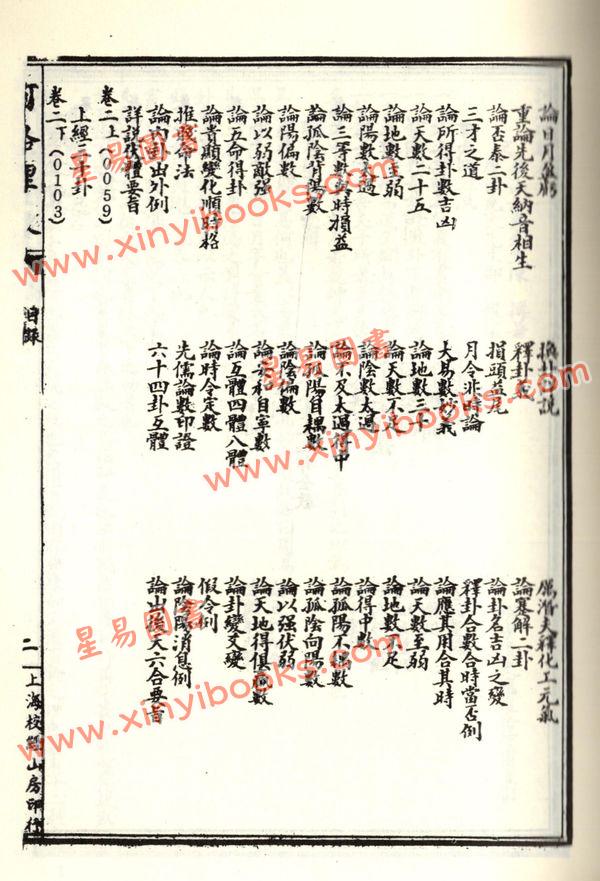 論日月盈虧
重論先後天納音相生
論否泰二卦
三才之道
論所得卦數吉凶
論天數二十五
論地數至弱
論陽數太過
論三等數時損益
論孤陰背陽數
論陽偏數
論以弱敵強
論五命得卦
論貴顯變化順時格
推命法
論內卦出外例
詳說伐體要旨
卷二上(0059)
上經三十卦
卷二下(0103)
換卦說
釋卦
指頭益尾
月令非時論
大易數妙義
論地數三十
論天數不足
論陰數太過
論不及太過得中
論孤陽自耦數
論陰偏數
論安和自寧數
論互體四體八體
論時令定數
先儒論數印證
六十四卦互體
夫釋化工元氣
論蹇解二卦
論卦名吉凶之變
釋卦合數合時當否例
論應其用合其時
論天數至弱
論地數不足
論得中數
論孤陽不偶數
論孤陰向陽數
論以強伏弱
論天地得俱數
論卦變爻變
假令例
論陰陽消息例
論出後天六合要旨
河洛理數
目錄
二
上海校經山房印行
星易图书
www.xinyibooks.com
星易图书
www.xinyibooks.com
星易图书
www.xinyibooks.com